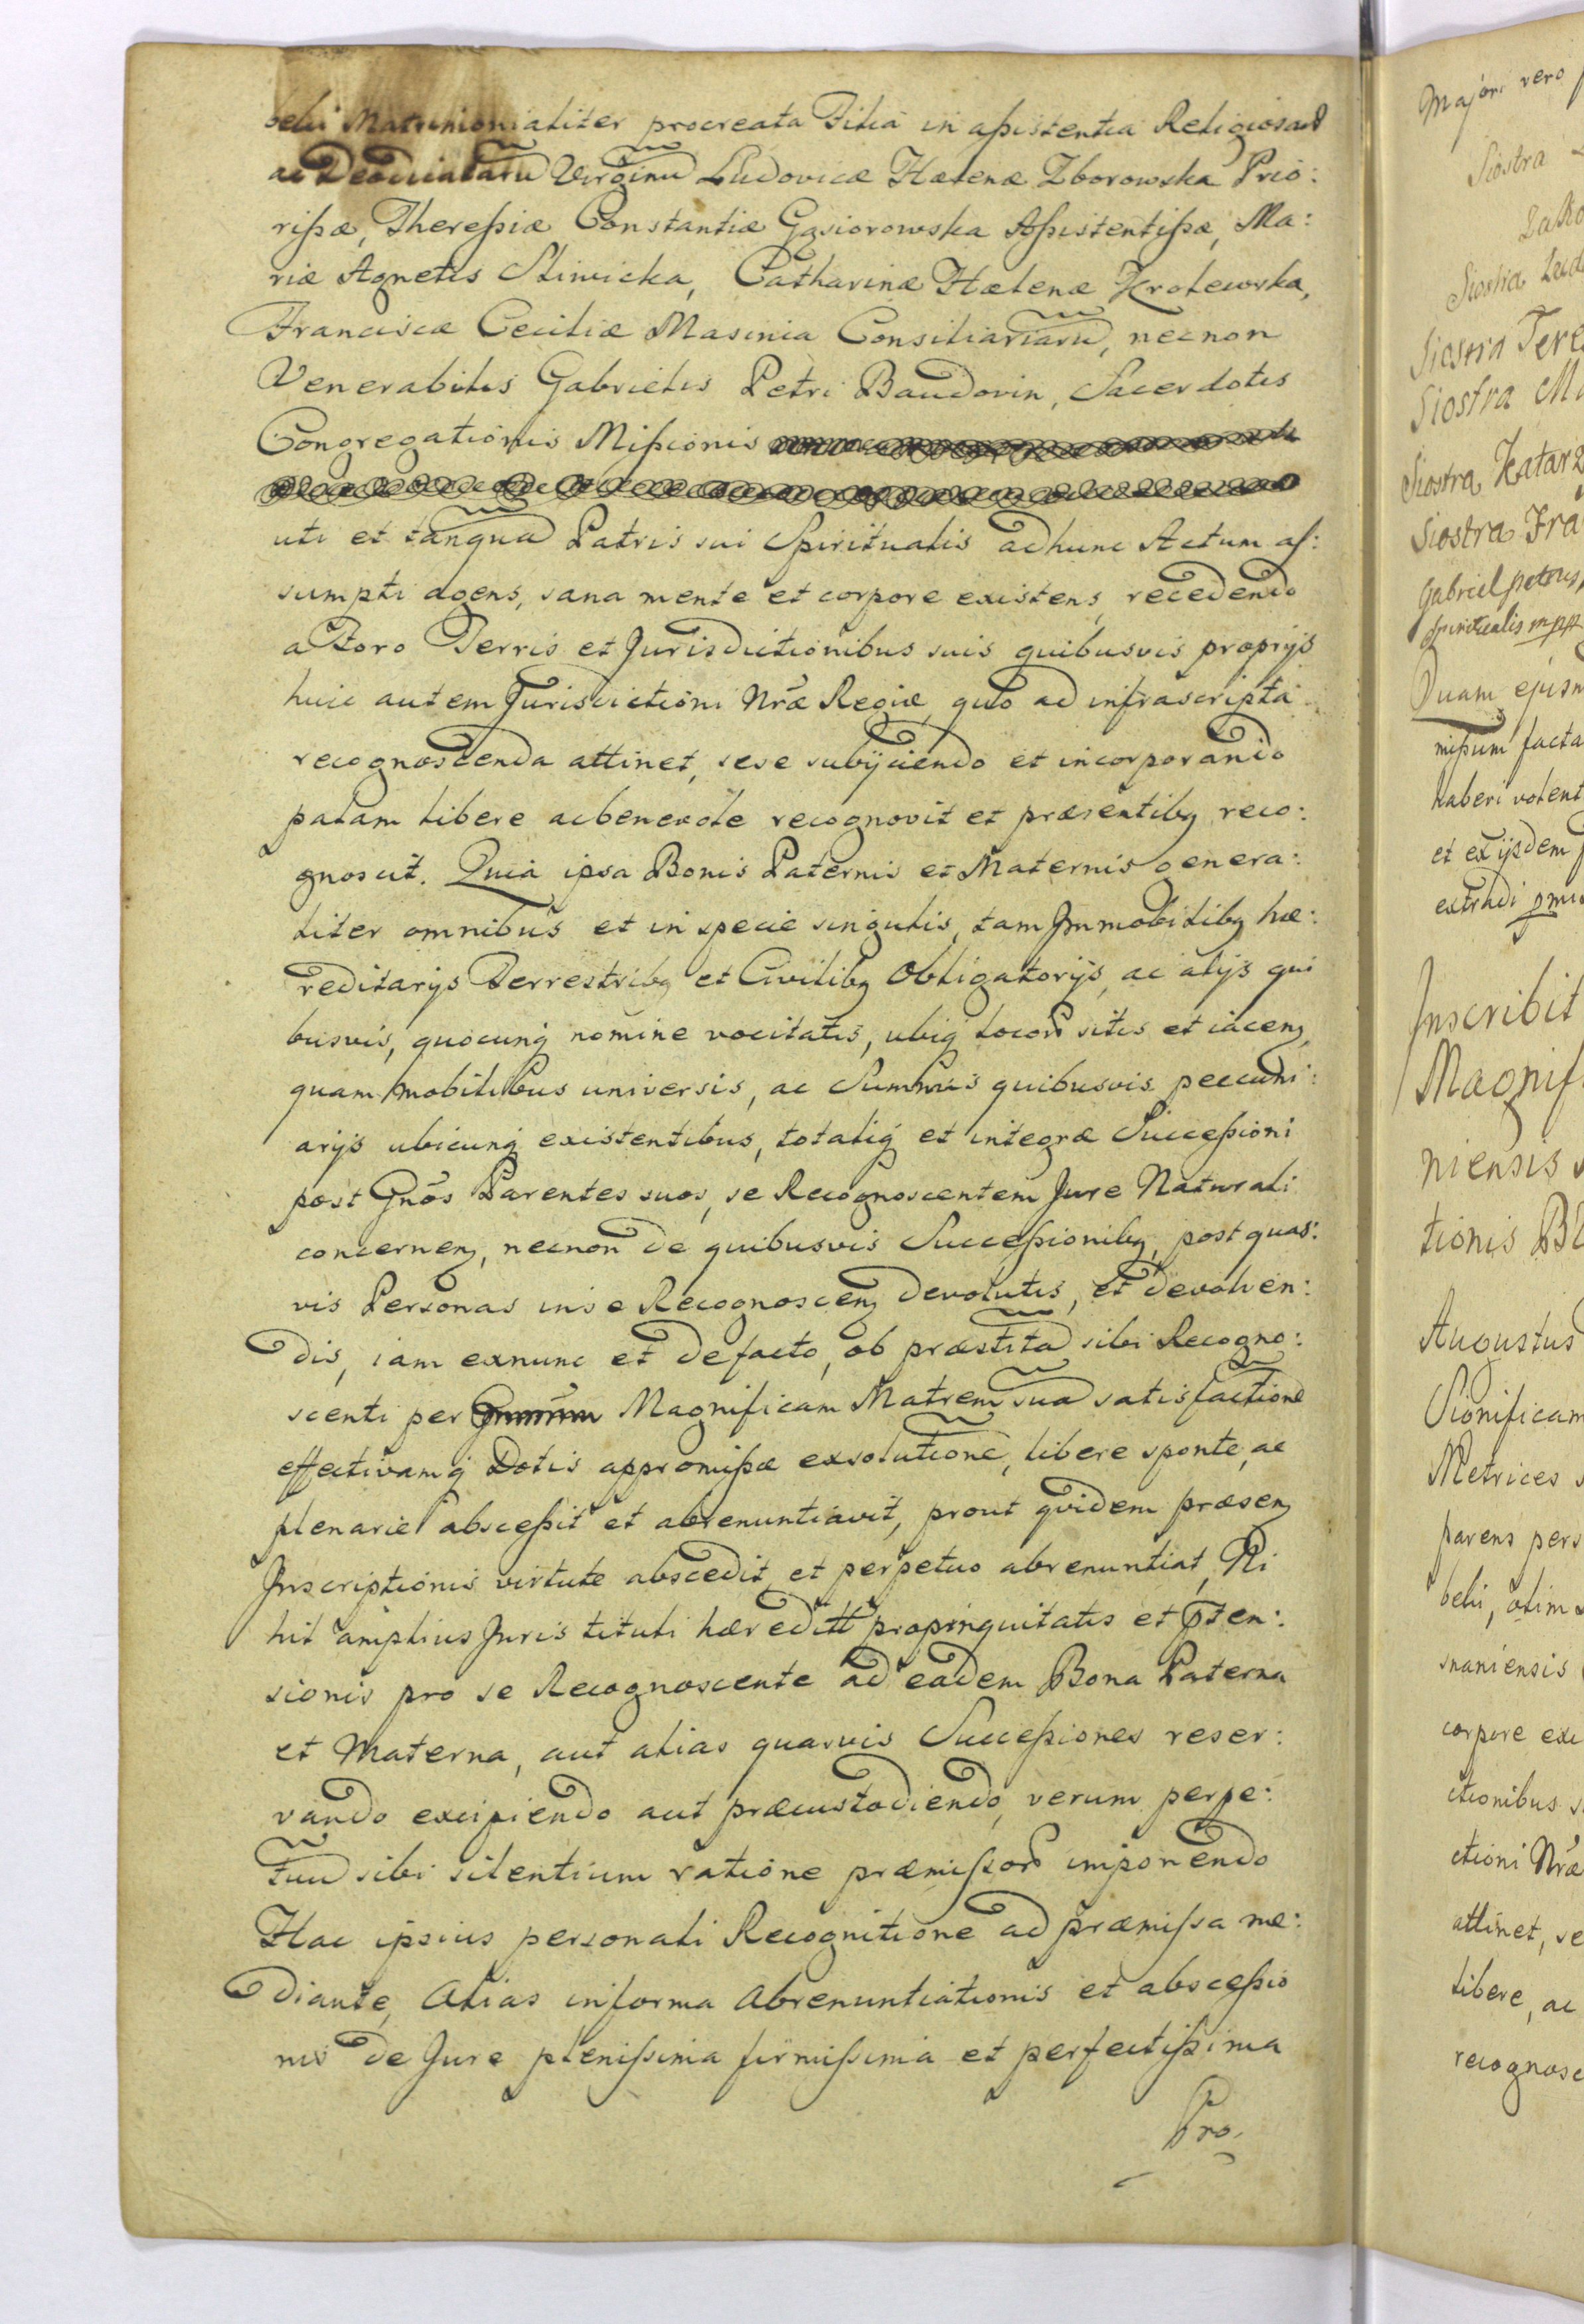 belii Matrimonialiter procreata Filia in aßistentia Religiosarū
ac Deodicatarū Virginū Ludovicæ Hælenæ Zborowska Prio:
rißæ, Thereßiæ Constantiæ Gąsiorowska Aßistentißæ, Ma:
riæ Agnetis Sliwicka, Catharinæ Hælenæ Krolewska,
Franciscæ Ceciliæ Masinia Consiliariarū, necnon
Venerabilis Gabrielis Petri Baudovin, Sacerdotis
Congregationis Mißionis
uti et tanquā Patris sui Spiritualis ad hunc Actum aſ:
sumpti agens, sana mente et corpore existens, recedendo
a Foro Terris et Jurisdictionibus suis quibusvis proprijs
huic autem Jurisdictioni Nr̃æ Regiæ, quo ad infrascripta
recognoscenda attinet, sese subijciendo et incorporando
palam libere ac benevole recognovit et præsentibq reco:
gnoscit. Quia ipsa Bonis Paternis et Maternis genera:
liter omnibus et in specie singulis, tam Jmmobilibq hæ:
reditarijs Terrestribq et Civilibq Obligatorijs, ac alijs qui
busvis, quocunq nomine vocitatis, ubiq locorū sitis et iacenq
quam mobilibus universis, ac Summis quibusvis peccuni:
arijs ubicunq existentibus, totaliq et integræ Succeßioni
post Gnõs Parentes suos, se Recognoscentem Jure Naturali
concernenq, necnon de quibusvis Succeßionibq, post quas:
vis Personas in se Recognoscenq devolutis, et devolven:
dis, iam exnunc et de facto, ob præstitā sibi Recogno:
scenti per Magnificam Matrem suā satisfactionē
effectivamq Dotis appromißæ exsolutionē, libere sponte, ac
plenarie absceßit et abrenuntiavit, prout quidem præsenq
Jnscriptionis virtute abscedit et perpetuo abrenuntiat, Ni
hil amplius Juris tituli hæreditt propinquitatis et p̃ten:
sionis pro se Recognoscente ad eadem Bona Paterna
et Materna, aut alias quasvis Succeßiones reser:
vando excipiendo aut præcustodiendo, verum perpe:
tuū sibi silentium ratione præmiſsorū imponendo
Hac ipsius personali Recognitione ad præmiſsa me:
diante, Alias in forma Abrenuntiationis et absceßio
nis de Jure pleniſsima firmiſsima et perfectißima
Pro,
Majori vero
Siostra
Siostra Lud
Siostra Tere
Siostra
Siostra Katarz
Siostra Fra
Gabriel petrus
spiritualis mpp
Quam ejusm
mißum facta
haberi volent
et ex ijsdem
extradi
Jnscribit
Magnif
niensis
tionis
Augustus
Significam
Metrices
parens pers
belii, olim
snaniensis
corpore exi
ctionibus
ctioni Nr̃æ
attinet, se
libere, ac
recognosc